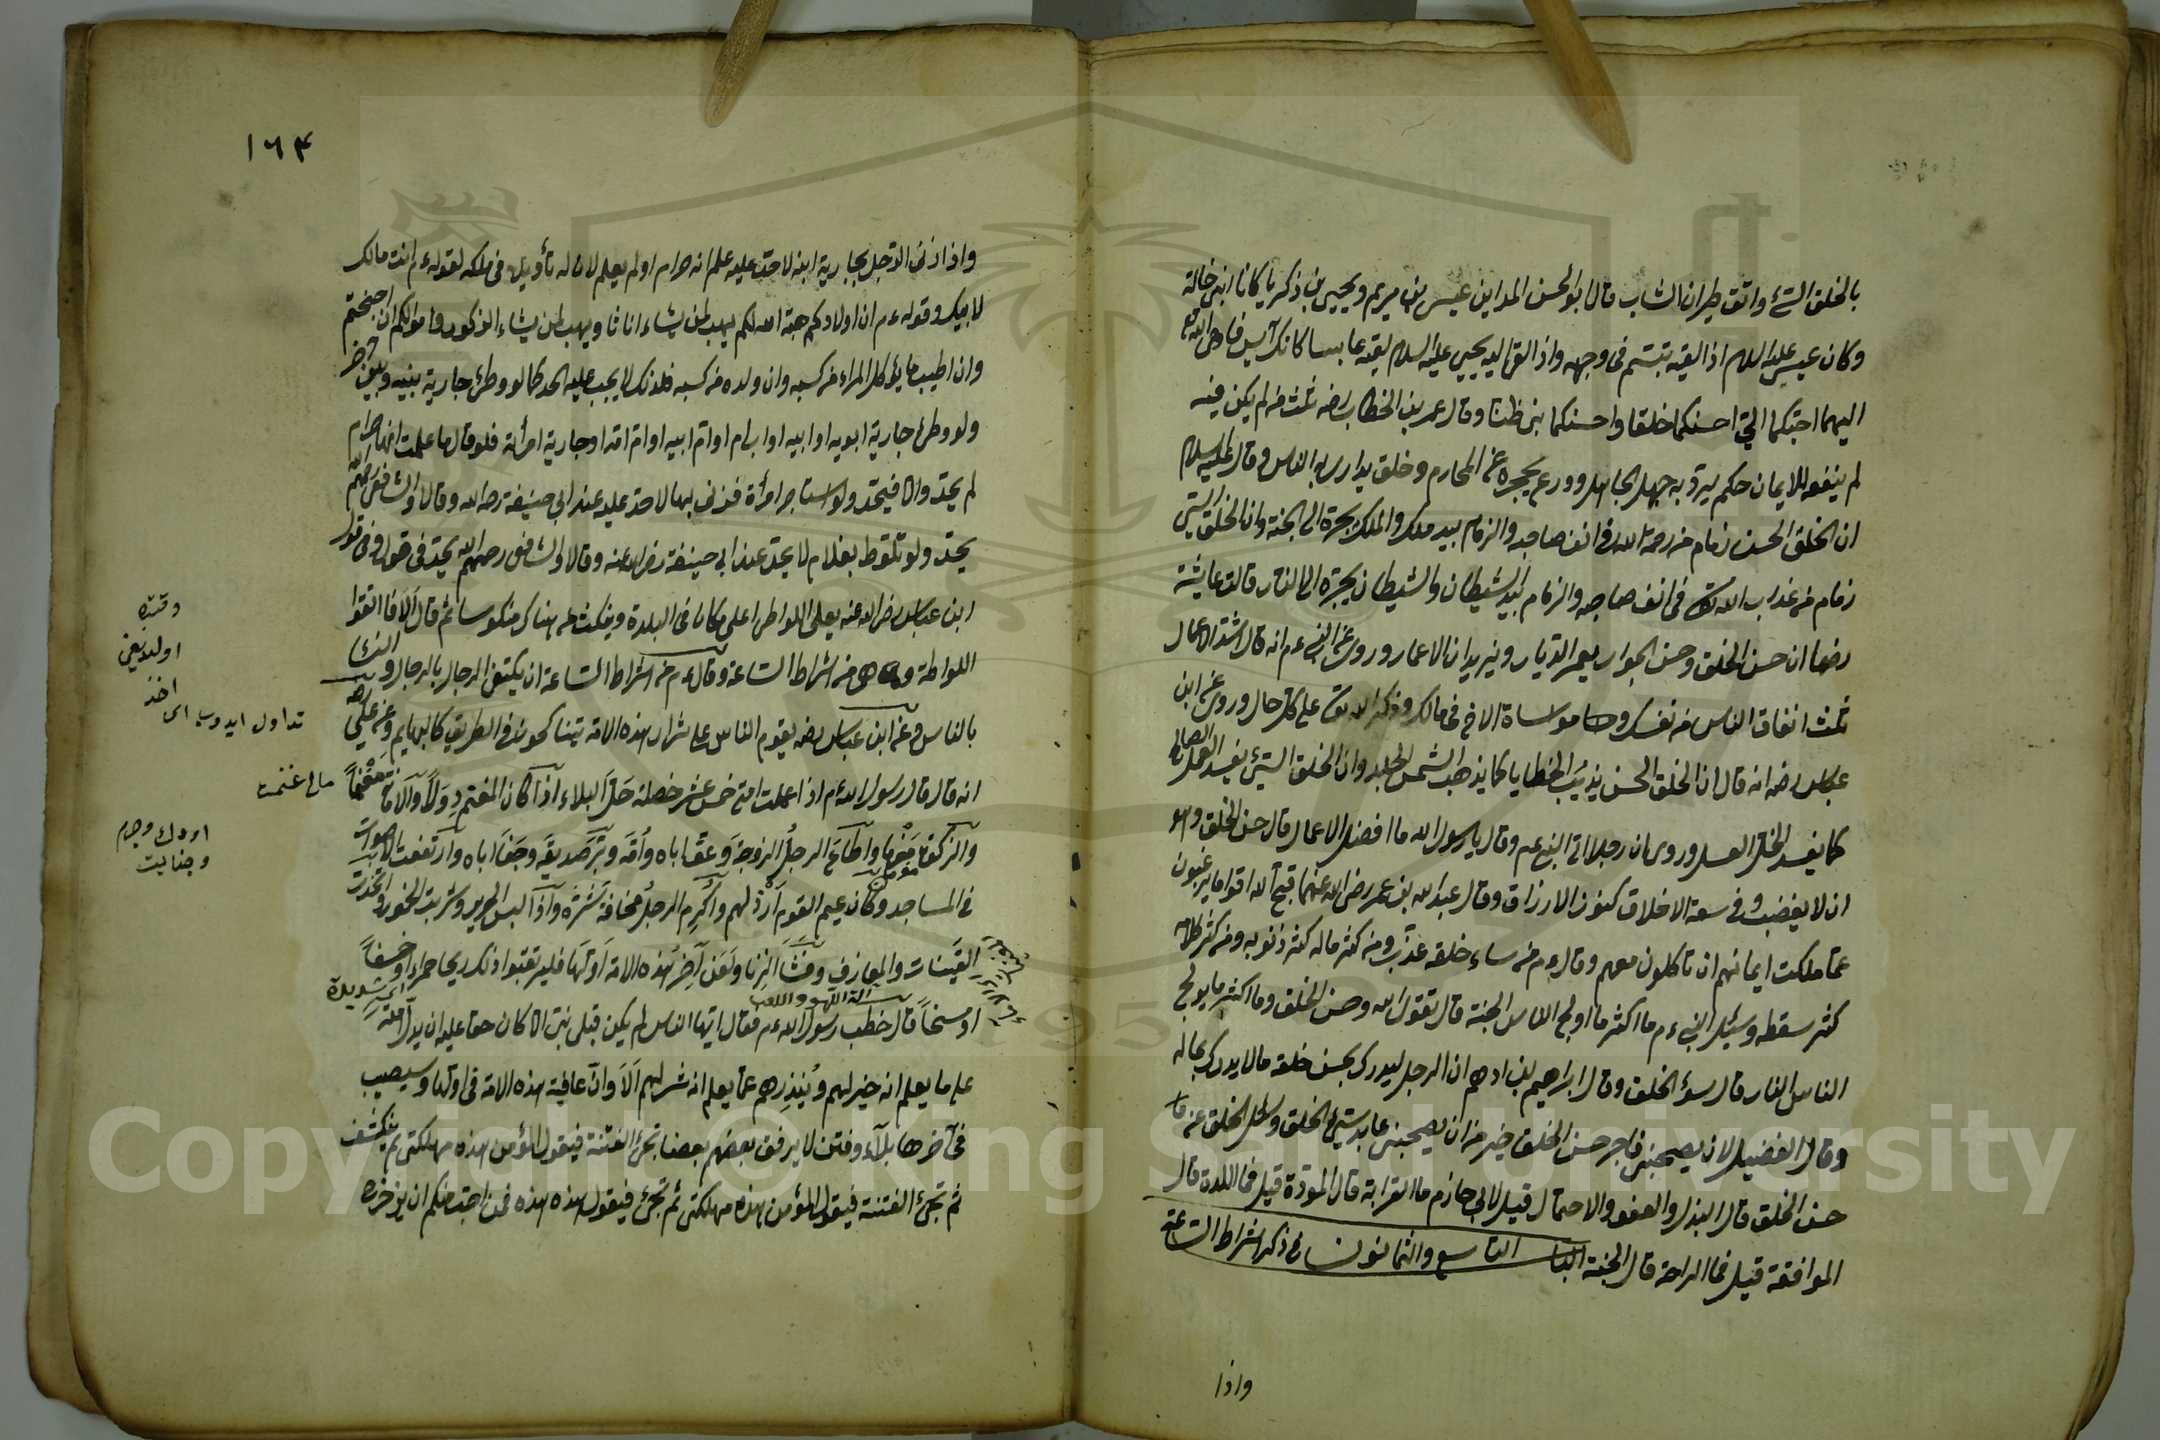 بالخلق السئ واتق طيران الشاب قال ابو الحسن المداين عيسى بن مريم ويحيى بن ذكريا كانا ابنى خالة
وكان عيسى عليه السلام اذا لقيه تبسم فى وجهه واذا لقى اليه يحيى عليه السلام لقيه عابسا كانك آيس فاوحى الله تع
اليهما احبكما الىّ احسنكما خلقا واحسنكما بى ظنا وقال عمر بن الخطاب رضه ثلث من لم يكن فيه
لم ينفعه الايمان حكم يرد به جهل الجاهل وورع يحجزه عن المحارم وخلق يدارى به الناس وقال عليه السلام
ان الخلق الحسن زمام من رحمة الله فى انف صاحبه والزمام بيد ملك والملك يجرّه الى الجنة وان الخلق السيئ
زمام من عذاب الله تع فى انف صاحبه والزمام بيد الشيطان والشيطان يجرّه الى النار قالت عايشة
رضها ان حسن الخلق وحسن الجوار يعمر الديار ويزيدان الاعمار وروى عن النبى عم انه قال اشد الاعمال
ثلث انفاق الناس من نفسك ومواساة الاخ فى مالك وذكر الله تع على كل حال وروى عن ابن
عباس رضه انه قال ان الخلق الحسن يذيب الخطايا كما يذهب الشمس الجليد وان الخلق السيئ يفسد العمل الصالح
كما يفسد الخل العسل وروى ان رجلا اتى النبى عم وقال يا رسول الله ما افضل الاعمال قال حسن الخلق وهو
ان لا يغضب وفى سعة الاخلاق كنوز الارزاق وقال عبد الله بن عمر رضى الله عنهما قبح الله اقواما يرغبون
عما ملكت ايمانهم ان تاكلون معهم وقال عم من ساء خلقه عذب ومن كثر ماله كثر ذنوبه ومن كثر كلامه
كثر سقطه وسئل النبى عم ما اكثر ما اولج الناس الجنة قال تقوى الله وحسن الخلق وما اكثر ما يولج
الناس النار قال سوء الخلق وقال ابراهيم بن ادهم ان الرجل ليدرك بحسن خلقه ما لا يدرك بماله
وقال الفضيل لان يصحبنى فاجر حسن الخلق خير من ان يصحبنى عابد سيئ الخلق وسئل الخلق عن ما
حسن الخلق قال البذل والعفو والاحتمال قيل لابى حازم ما القرابة قال المودّة قيل فما اللذة قال
الموافقة قيل فما الراحة قال الجنة الباب التاسع والثمانون فى ذكر اشراط الساعة
واذا
١٦٣
واذا زنى الرّجل بجارية ابنه لا حدّ عليه علم انه حرام او لم يعلم لان له تأويل فى ملكه لقوله عم انت ومالك
لابيك وقوله عم ان اولادكم هبة الله لكم يهب لمن يشاء اناثا ويهب لمن يشاء الذكور واموالكم ان احتجتم
وان اطيب ما يؤكل المراء من كسبه وان ولده من كسبه فلذلك لا يجب عليه الحد كما لو وطئ جارية بينه وبين
ولو وطئ جارية ابويه او ابيه او اب ام او ام ابيه او ام امّه او جارية امرأته فلو قال ما علمت انها حرام
لم يحدّ والا فيحدّ ولو استاجر امرأة فزنى بها لا حدّ عليه عند ابى حنيفة رحه الله وقالا والشافعى رحمهم الله
يحدّ ولو تلوّط بغلام لا يحدّ عند ابى حنيفة رضى الله عنه وقالا والشافعى رحمهم الله يحدّ فى قول وفى قول
ابن عباس رضى الله عنه يعلى اللواطى اعلى مكان فى البلدة وينكث من هناك منكوسا ثم قال ألا فاتقوا
اللواطة وهى من اشراط الساعة وقال عم من اشراط الساعة ان يكتفى الرجال بالرجال والنساء
بالناس وعن ابن عباس رضه يقوم الناس على شرار هذه الامة يتناكحون فى الطريق كالبهايم وعن على رضه
انه قال قال رسول الله عم اذا عملت امتى خمس عشر خصلة حل البلاء اذا كان المغنم دولا والامانة مغنما
والزكوة مغرما واطاع الرجل الزوجة وعقّ اباه وأمّه وبرّ صديقه وجفا اباه وارتفعت الاصوات
فى المساجد وكان زعيم القوم ارذلهم واكرم الرجل مخافة شرّه واذا لبس الحرير وشربت الخمور واتخذت
القينات والمعازف وفشا الزنا ولعن آخر هذه الامة اولها فليرتقبوا ذلك ريحا حمراء او خسفا
اى شديدة
آلة اللهو واللعب
او مسخا قال خطب رسول الله عم فقال ايها الناس لم يكن قبلى نبى الا كان حقا عليه ان يدل امته
على ما يعلم انه خير لهم وينذرهم عما يعلم انه شر لهم ألا وان عافية هذه الامة فى اولها وسيصيب
فى آخرها بلاء وفتن لا يرفق بعضهم بعضا تجئ الفتنة فيقول المؤمن هذه مهلكتى ثم ينكشف
ثم تجئ الفتنة فيقول المؤمن هذه مهلكتى ثم تجئ فيقول هذه هذه فمن احب منكم ان يزخزه
وقتده
اولنديغى
اخذ
تداول ايدوب اى
مال غنيمت
اودك وجرم
وجنايت